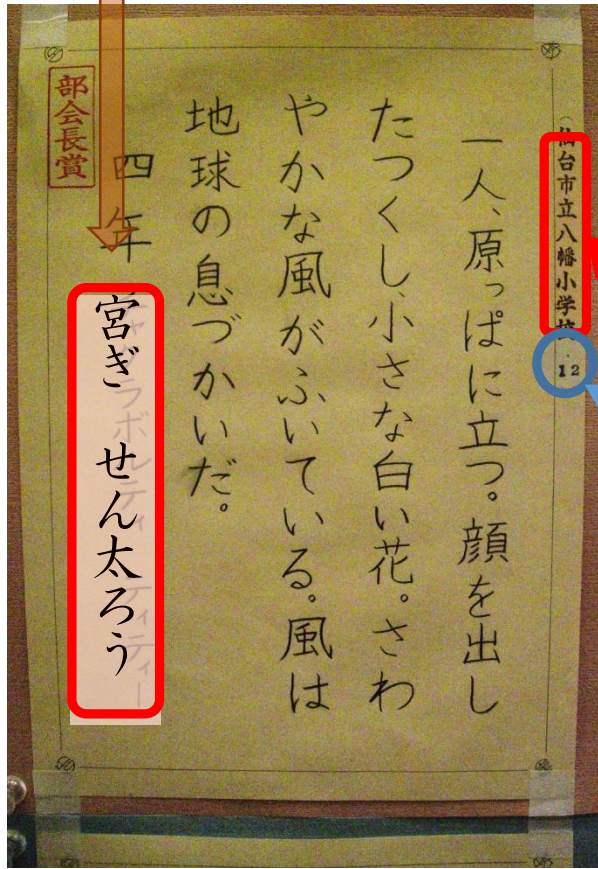 (仙台市立八幡小学校・12
一人、原っぱに立つ。顔を出し
たつくし、小さな白い花。さわ
やかな風がふいている。風は
地球の息づかいだ。
四年 宮ぎ せん太ろう
部会長賞